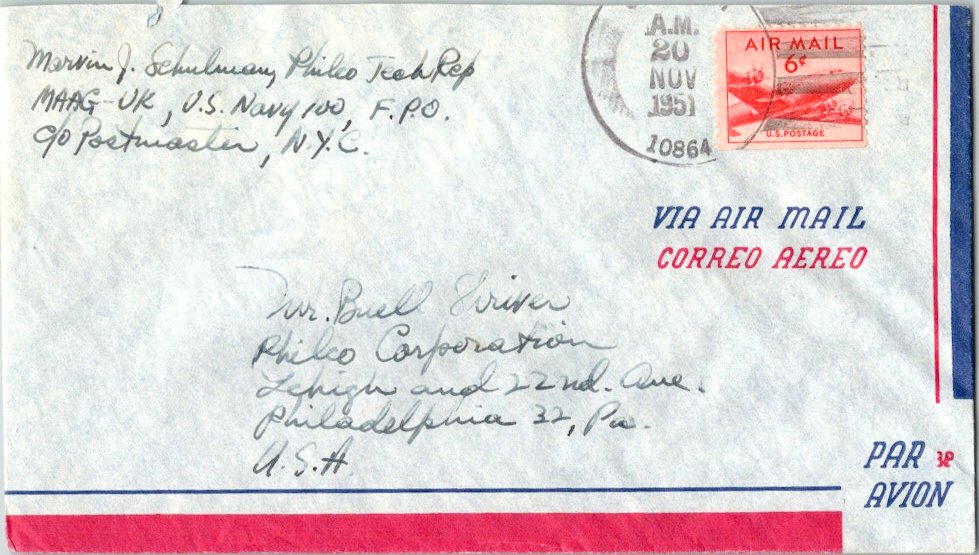 Marvin J. Schulman, Philco Tech Rep
MAAG-UK, U.S. Navy 100, F.P.O.
c/o Postmaster, N.Y.C.
A.M.
20
NOV
1951
10864
AIR MAIL
6¢
U.S. POSTAGE
VIA AIR MAIL
CORREO AEREO
Mr. Buell Shriver
Philco Corporation
Lehigh and 22nd. Ave.
Philadelphia 32, Pa.
U.S.A.
PAR
AVION